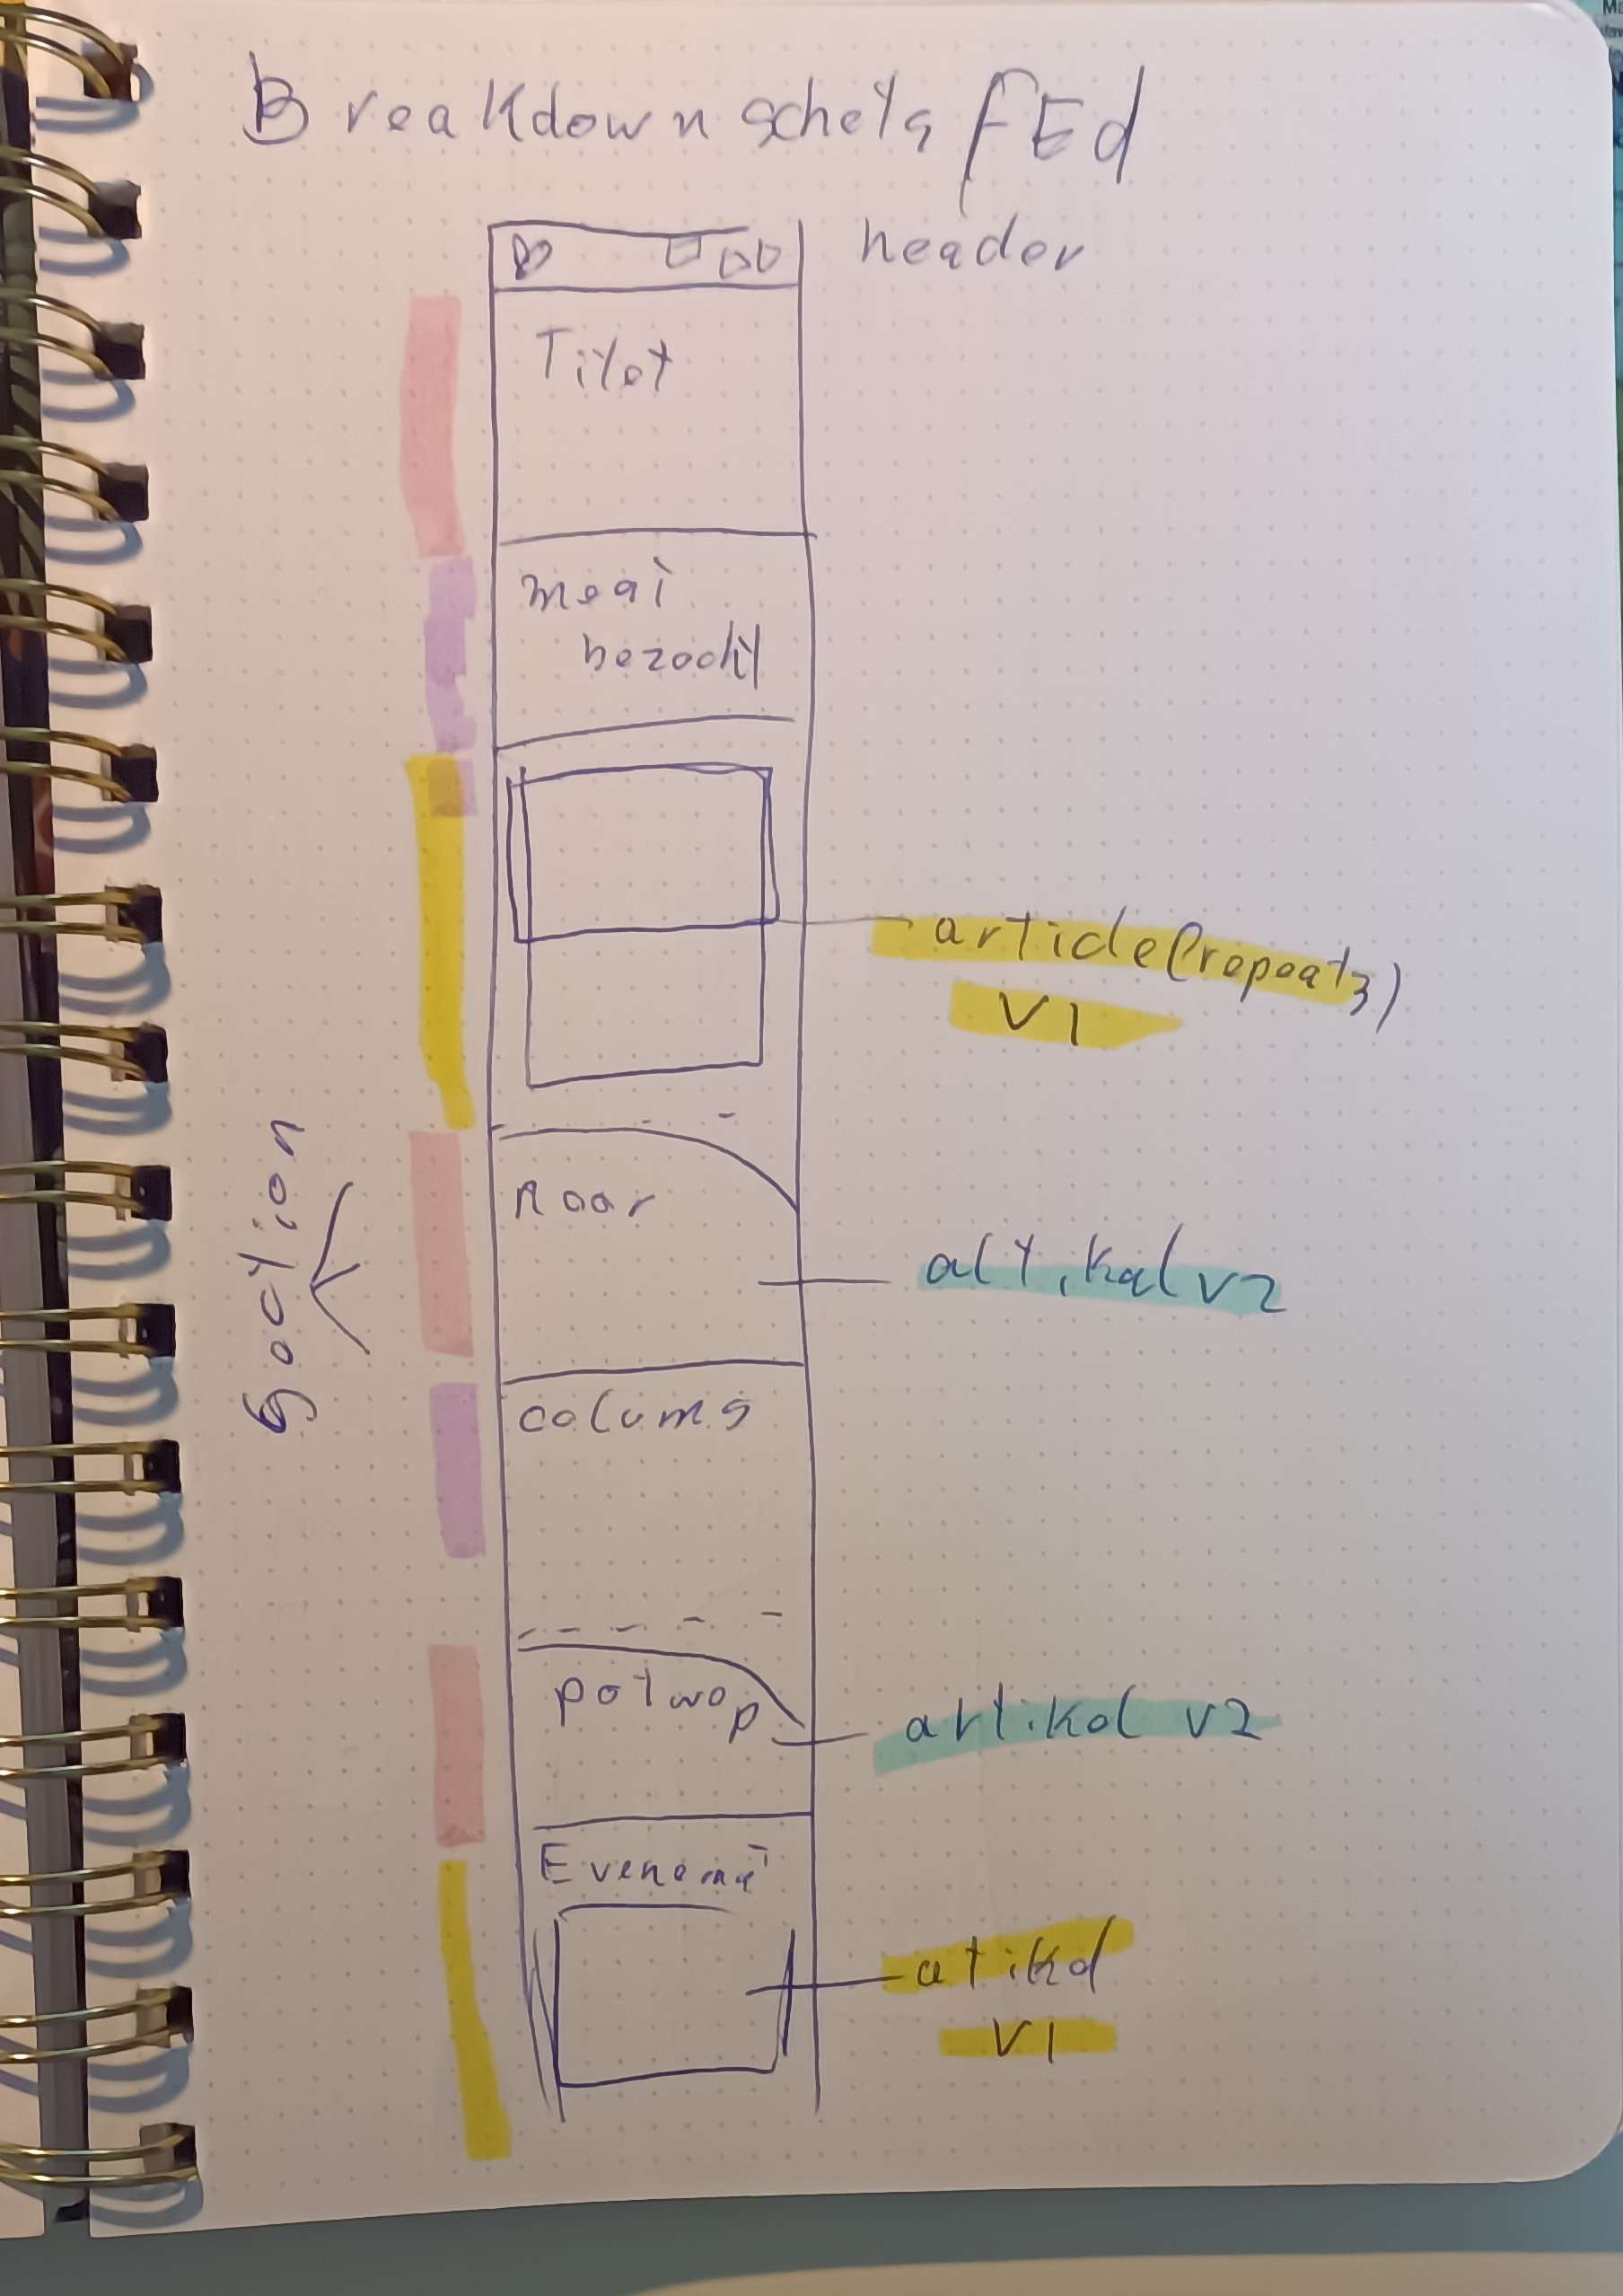 Breakdown schets FEd
header
Titel
meai
bezocht
article (repeat 3)
V1
section
Naar
artikel v2
colums
potwop
artikel v2
Evenem
atikel
V1